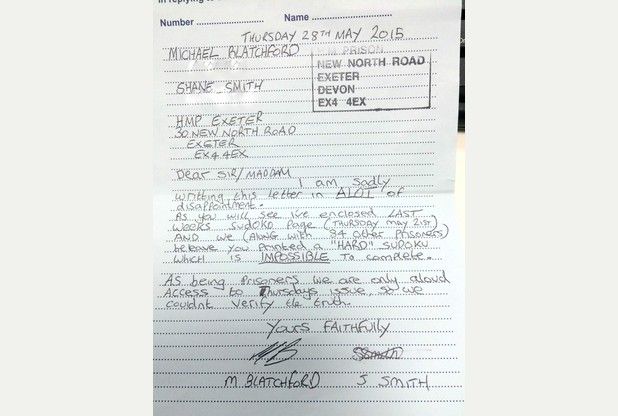 In replying to
Number
Name
THURSDAY 28TH MAY 2015
MICHAEL BLATCHFORD
PRISON
NEW NORTH ROAD
EXETER
DEVON
EX4 4EX
SHANE SMITH
HMP EXETER
30 NEW NORTH ROAD
EXETER
EX4 4EX
Dear SIR/MADDAM
I am sadly
writting this letter in ALOT of
disappointment.
As you will see ive enclosed LAST
weeks SUDOKO Page (THURSDAY MAY 21ST)
AND we (ALNG with 84 other Prisoners)
beleave you Printed a "HARD" SUDOKU
which is IMPOSSIBLE To complete.
As being Prisoners we are only aloud
Access to Thursdays issue, so we
couldnt verify the truth.
Yours FAITHFULLY
M BLATCHFORD
S SMITH